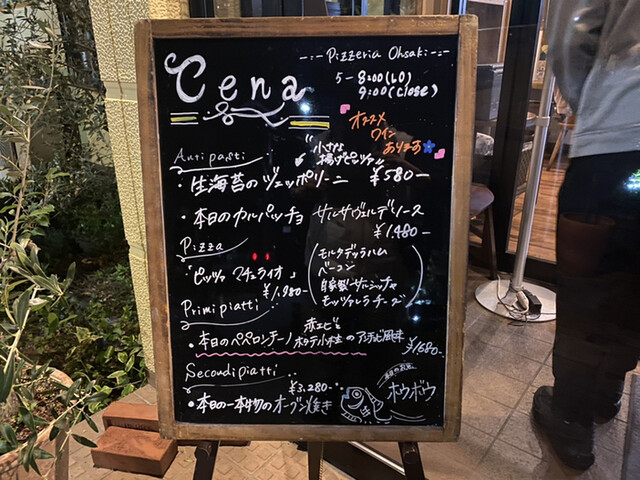 Cena
-:- Pizzeria Ohsaki -:-
5-8:00(LO)
9:00(close)
オススメ
ワイン
あります
Antipasti
小さな
揚げピッツァ
・生海苔のヅェッポリーニ ¥580-
・本日のカルパッチョ サルサヴェルデソース
¥1,480-
Pizza
「ピッツァ マチェライオ」
¥1,980-
モルタデッラハム
ベーコン
自家製サルシッチャ
モッツァレラチーズ
Primipiatti
・本日のペペロンチーノ 赤エビと
ホタテ小柱のアンチョビ風味 ¥1680-
Secondipiatti
¥3,280-
・本日の一本物のオーブン焼き
本日のお魚
ホウボウ